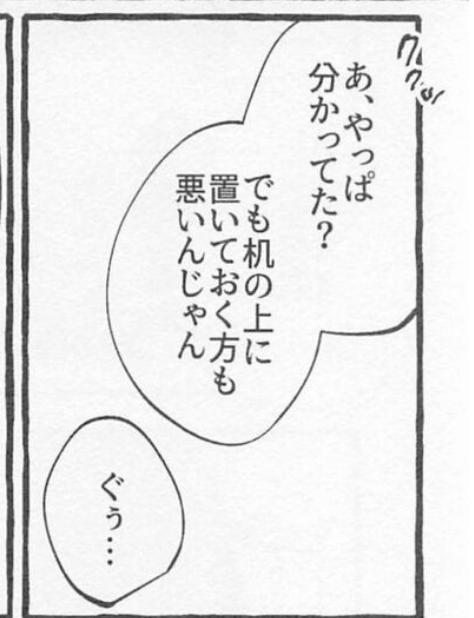 あ、やっぱ
分かってた？
でも机の上に
置いておく方も
悪いんじゃん
ぐぅ…